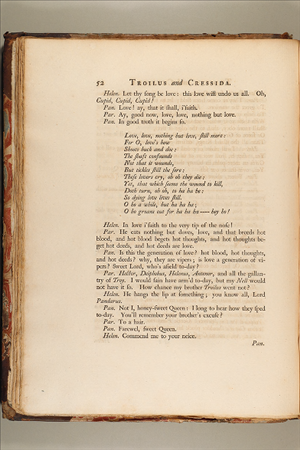 52 TROILUS and CRESSIDA.
Helen. Let thy song be love: this love will undo us all. Oh,
Cupid, Cupid, Cupid!
Pan. Love! ay, that it shall, i'faith.
Par. Ay, good now, love, love, nothing but love.
Pan. In good troth it begins so.
Love, love, nothing but love, still more:
For O, love's bow
Shoots buck and doe:
The shaft confounds
Not that it wounds,
But tickles still the sore:
These lovers cry, oh oh they die;
Yet, that which seems the wound to kill,
Doth turn, oh oh, to ha ha he:
So dying love lives still.
O ho a while, but ha ha ha;
O ho groans out for ha ha ha—— hey ho!
Helen. In love i'faith to the very tip of the nose!
Par. He eats nothing but doves, love, and that breeds hot
blood, and hot blood begets hot thoughts, and hot thoughts be-
get hot deeds, and hot deeds are love.
Pan. Is this the generation of love? hot blood, hot thoughts,
and hot deeds? why, they are vipers; is love a generation of vi-
pers? Sweet Lord, who's afield to-day?
Par. Hector, Deiphobus, Helenus, Antenor, and all the gallan-
try of Troy. I would fain have arm'd to-day, but my Nell would
not have it so. How chance my brother Troilus went not?
Helen. He hangs the lip at something; you know all, Lord
Pandarus.
Pan. Not I, honey-sweet Queen: I long to hear how they sped
to-day. You'll remember your brother's excuse?
Par. To a hair.
Pan. Farewel, sweet Queen.
Helen. Commend me to your niece.
Pan.